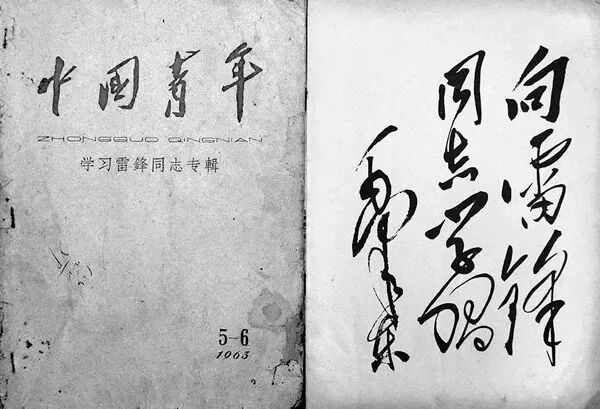 中国青年
ZHONGGUO QINGNIAN
学习雷鋒同志专輯
5-6
1963
向雷锋
同志学習
毛泽东